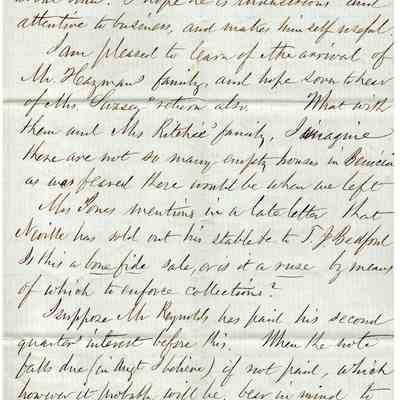 I hope he is industrious and
attentive to business, and makes himself useful
I am pleased to learn of the arrival of
Mr. Hayman's family, and hope soon to hear
of Mrs. return also. What with
them and Mrs Ritchie's family, I imagine
there are not so many empty houses in Benicia
as was feared there would be when we left
Mrs Jones mentions in a late letter that
Neville has sold out his stable &c to T. J. Bedford
Is this a bone fide sale, or is it a ruse by means
of which to enforce collections?
I suppose Mr Reynolds has paid his second
quarters' interest before this. When the note
falls due (in Augt I believe) if not paid, which
however it probably will be, bear in mind to